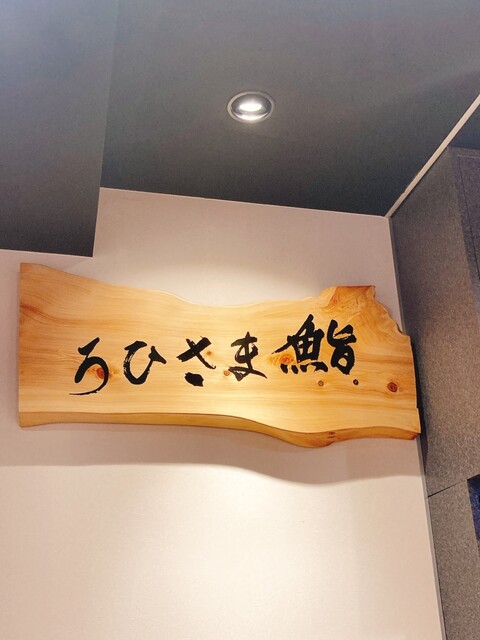 鮨まさひろ